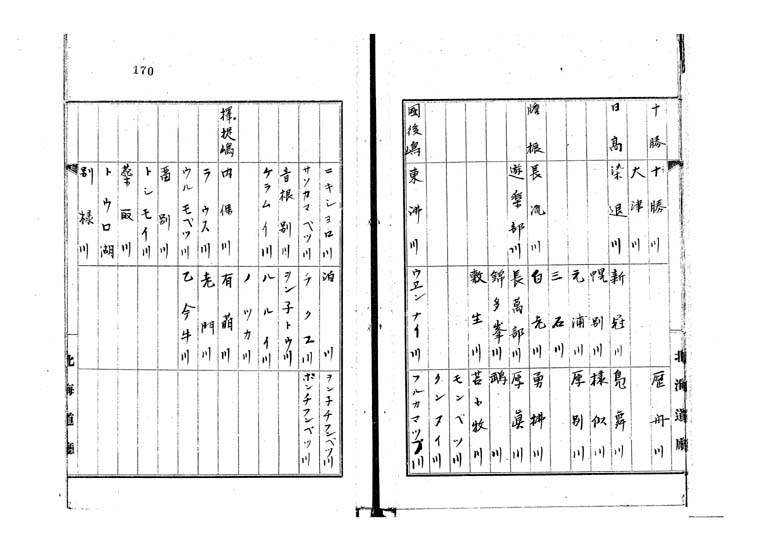 十勝 十勝川 歴舟川
大津川
日高 染退川 新冠川 鳧舞川
幌別川 様似川
元浦川 厚別川
三石川
膽振 長流川 白老川 勇拂川
遊樂部川 長萬部川 厚眞川
錦多峯川 鵡川
敷生川 苫小牧川
モンベツ川
クンヌイ川
國後嶋 東沸川 ウエンナイ川 フルカマップ川
北海道廳
170
ニキショロ川 泊川 ヲン子チフンベツ川
サツカマベツ川 チクニ川 ポンチフンベツ川
音根別川 ヲン子トウ川
ケラムイ川 ハルイ川
ノツカ川
擇捉嶋 内保川 有萌川
ラウス川 老門川
ウルモベツ川 乙今牛川
留別川
トシモイ川
蘂取川
トウロ湖
別様川
北海道廳